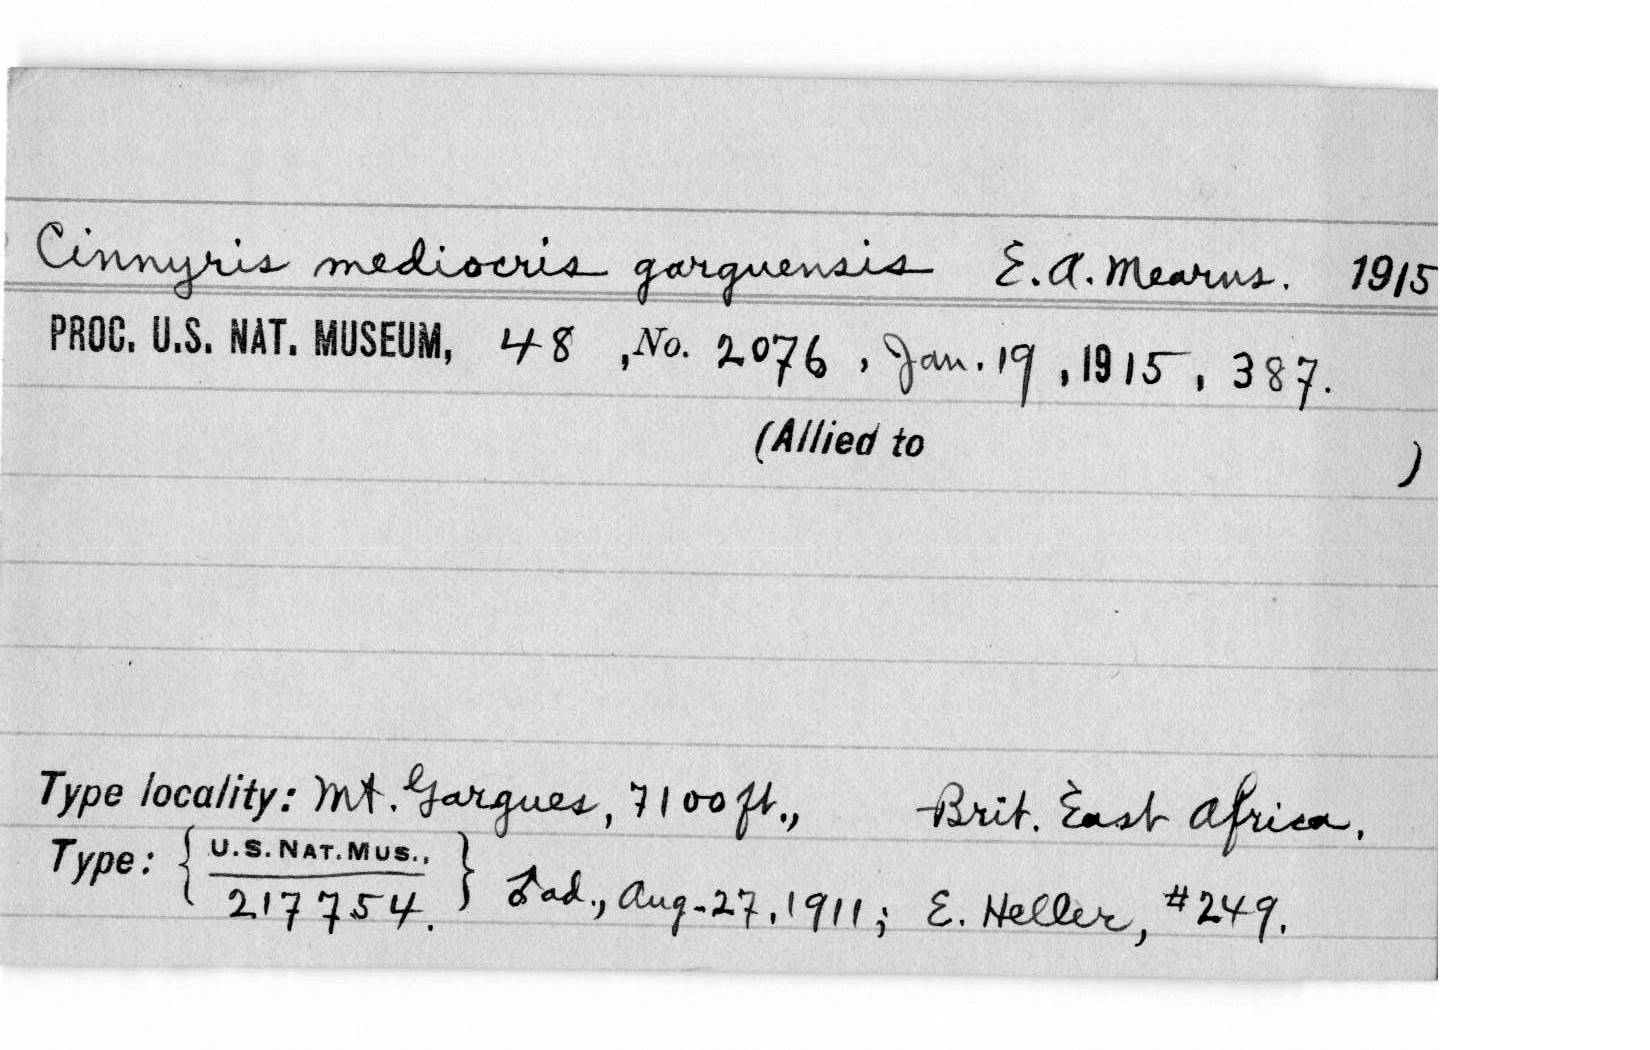 Cinnyris mediocris garguensis E.A. Mearns. 1915
PROC. U.S. NAT. MUSEUM, 48, No. 2076, Jan. 19, 1915, 387.
(Allied to )
Type locality: Mt. Gargues, 7100 ft., Brit. East Africa.
Type: { U.S. NAT. MUS., 217754. } ♂ad., Aug. 27, 1911; E. Heller, #249.